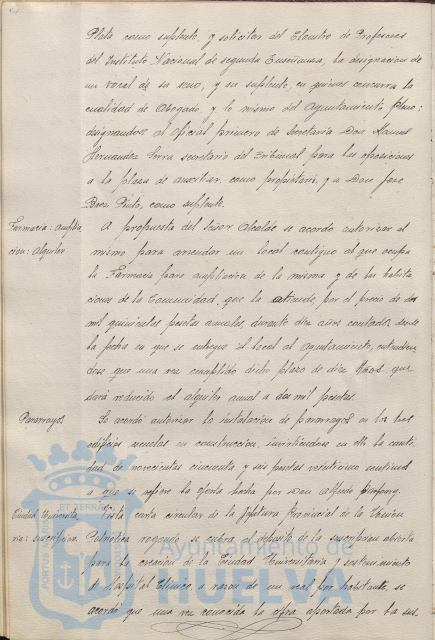 Plata como suplente, y solicitar del Claustro de Profesores
del Instituto Nacional de segunda Enseñanza, la designacion de
un vocal de su seno, y su suplente, en quienes concurra la
cualidad de Abogado, y lo mismo del Ayuntamiento Pleno;
designandose al oficial primero de Secretaria Don Manuel
Hernandez Serra secretario del Tribunal para las oposiciones
a la plaza de auxiliar, como propietario, y a Don Jose
Baez Pinto, como suplente.
Farmacia: amplia
cion: Alquiler
A propuesta del señor Alcalde se acordo autorizar al
mismo para arrendar un local contiguo al que ocupa
la Farmacia para ampliacion de la misma y de las habita
ciones de la Comunidad, que la atiende, por el precio de dos
mil quinientas pesetas anuales, durante diez años contados desde
la fecha en que se entregue el local al Ayuntamiento, entendien
dose que una vez cumplido dicho plazo de diez Años, que
dará reducido el alquiler anual a dos mil pesetas.
Pararrayos
Se acordó autorizar la instalacion de pararrayos en los tres
edificios escuelas en construccion, invirtiendose en ello la canti
dad de novecientas cincuenta y seis pesetas veinticinco centimos
a que se refiere la oferta hecha por Don Alfredo
Ciudad Universita
ria: suscripcion
Vista carta circular de la Jefatura Provincial de la Union
Patriotica rogando se cubra el deposito de la suscripcion abierta
para la creacion de la Ciudad Universitaria y sostenimiento
del Hospital Clinico, a razon de un real por habitante, se
acordó que una vez conocida la cifra aportada por las sus
PORTUS
ET TERRAE
Ayuntamiento de
HUELVA